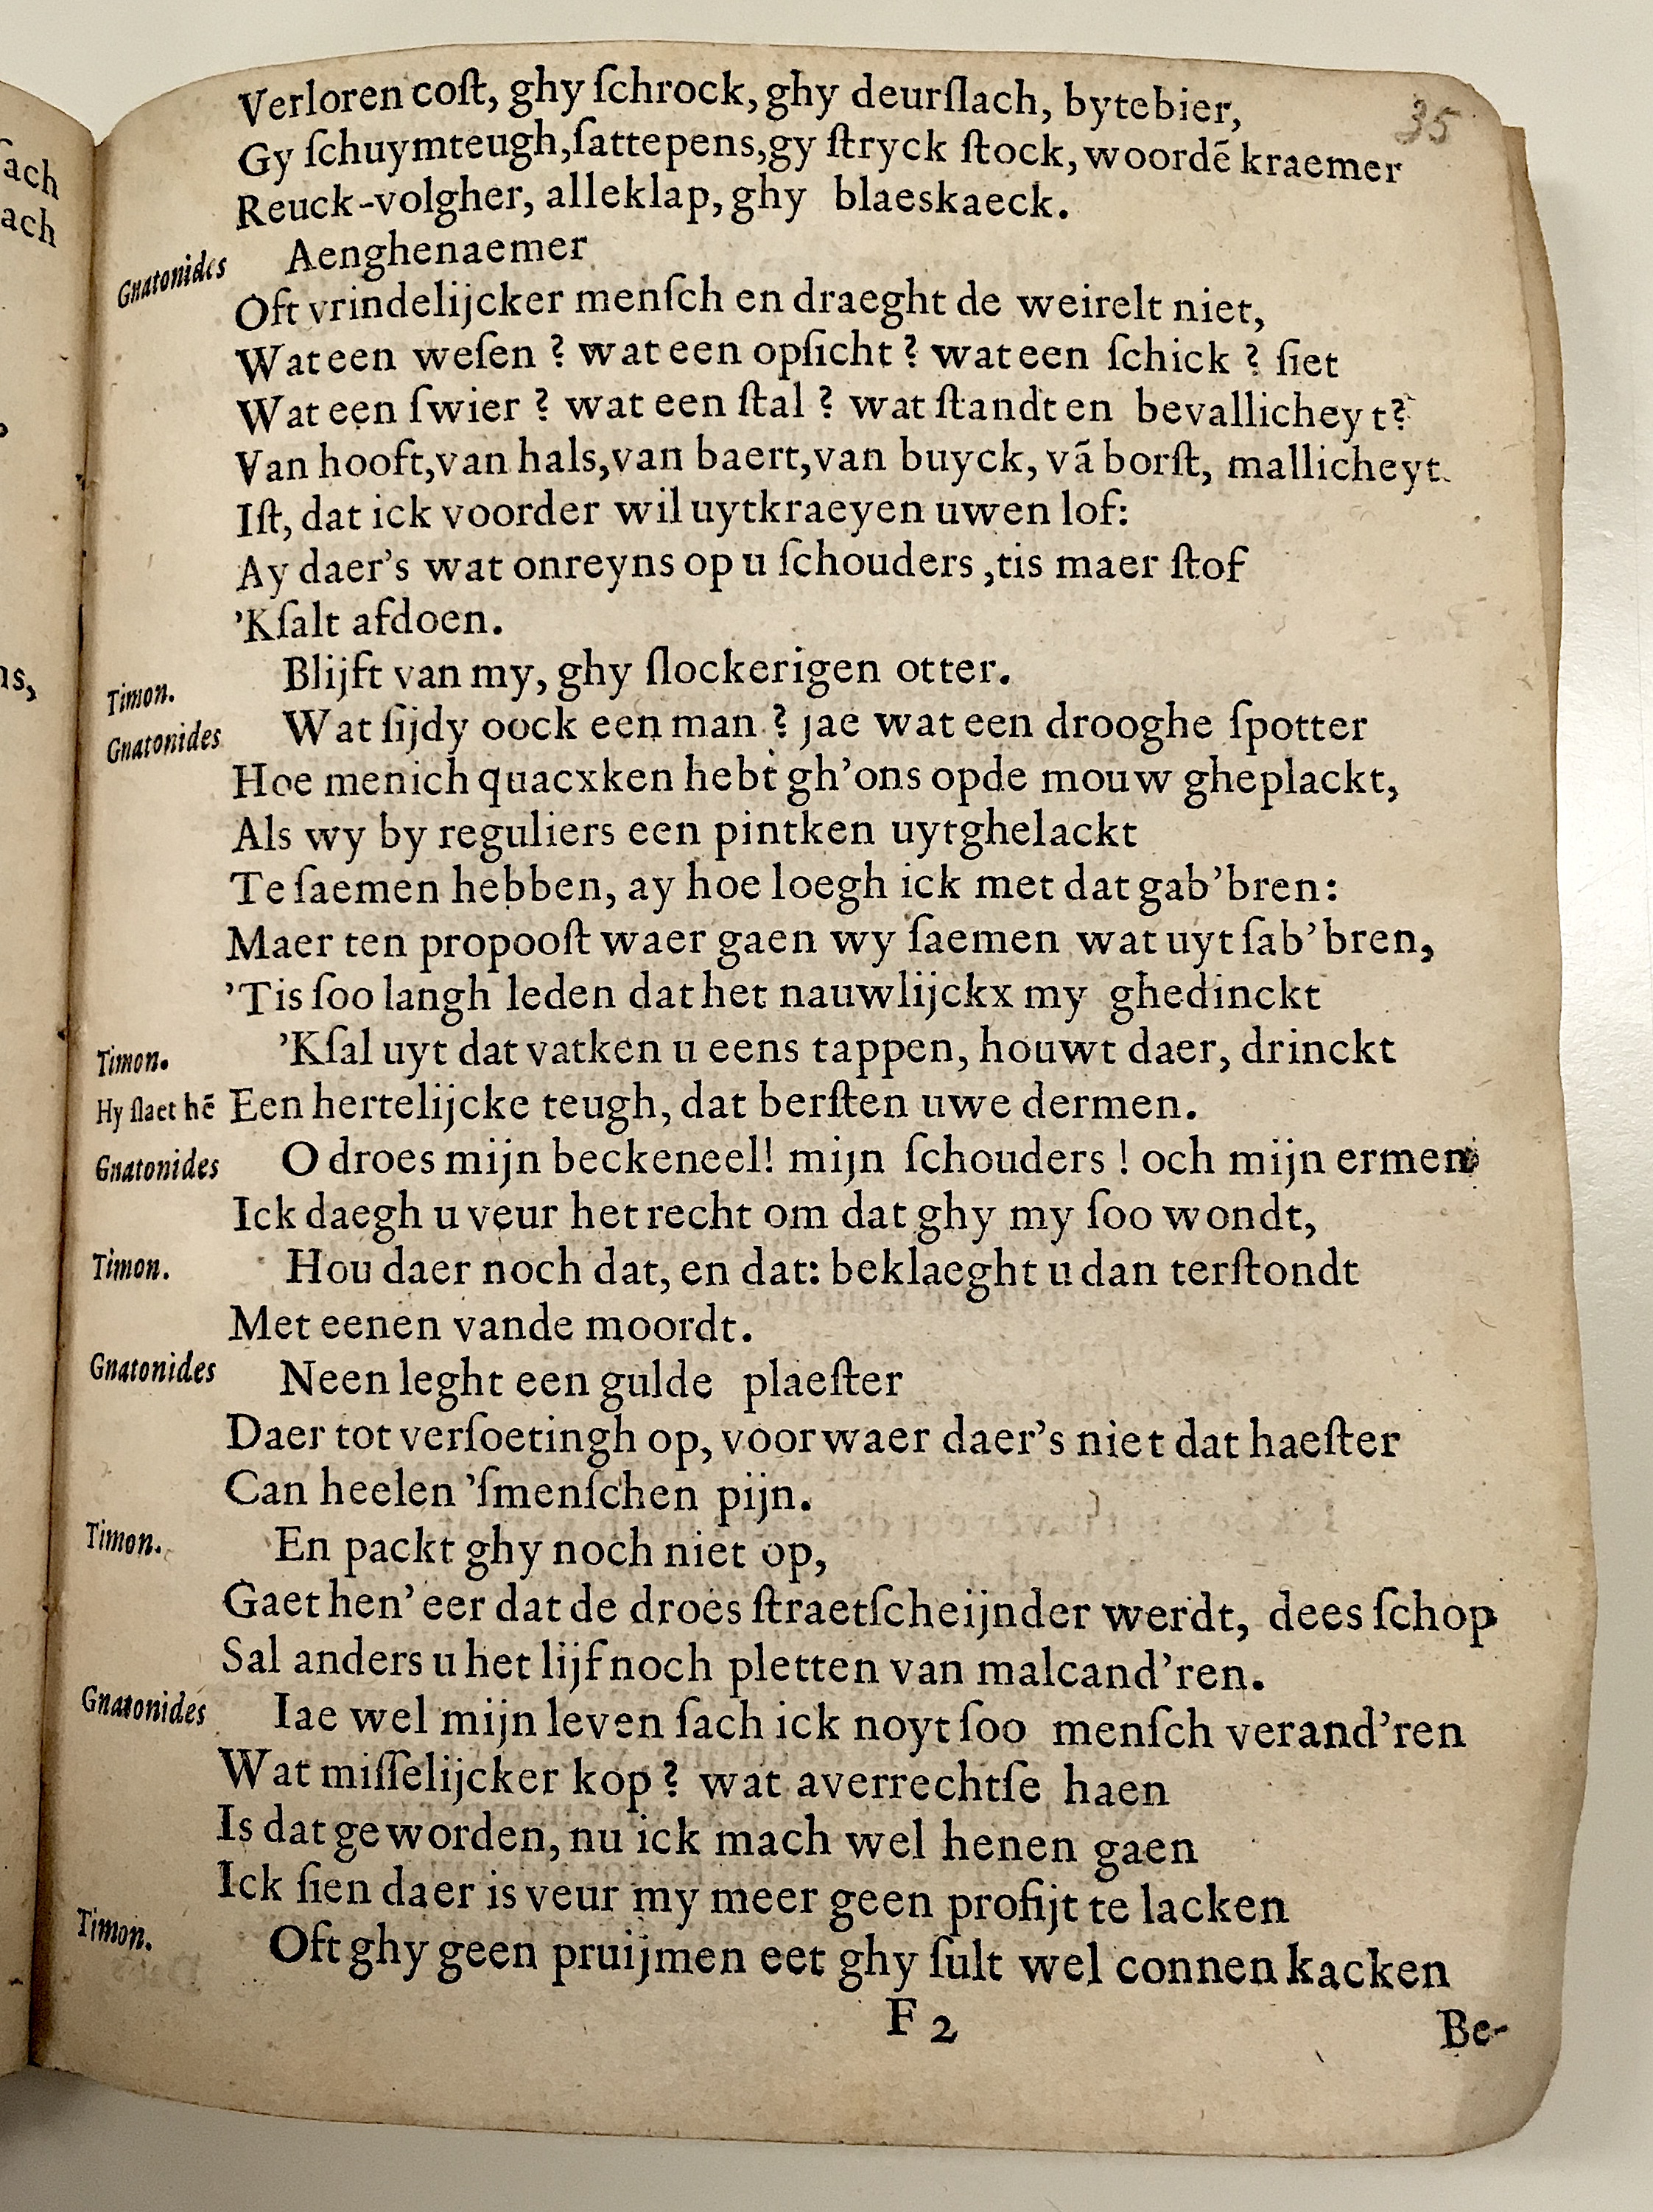 35
Verloren cost, ghy ſchrock, ghy deurſlach, bytebier,
Gy ſchuymteugh, ſattepens, gy ſtryck ſtock, woordẽ kraemer
Reuck-volgher, alleklap, ghy blaeskaeck.
Gnatonides Aenghenaemer
Oft vrindelijcker menſch en draeght de weirelt niet,
Wat een weſen ? wat een opſicht ? wat een ſchick ? ſiet
Wat een ſwier ? wat een ſtal ? wat ſtandt en bevallicheyt?
Van hooft, van hals, van baert, van buyck, vã borſt, mallicheyt.
Iſt, dat ick voorder wil uytkraeyen uwen lof:
Ay daer's wat onreyns op u ſchouders ,tis maer ſtof
'Kſalt afdoen.
Timon. Blijft van my, ghy ſlockerigen otter.
Gnatonides Wat ſijdy oock een man ? jae wat een drooghe ſpotter
Hoe menich quacxken hebt gh'ons opde mouw gheplackt,
Als wy by reguliers een pintken uytghelackt
Te ſaemen hebben, ay hoe loegh ick met dat gab'bren:
Maer ten propooſt waer gaen wy ſaemen wat uyt ſab'bren,
'Tis ſoo langh leden dat het nauwlijckx my ghedinckt
Timon. 'Kſal uyt dat vatken u eens tappen, houwt daer, drinckt
Hy ſlaet hẽ Een hertelijcke teugh, dat berſten uwe dermen.
Gnatonides O droes mijn beckeneel! mijn ſchouders ! och mijn ermen
Ick daegh u veur het recht om dat ghy my ſoo wondt,
Timon. Hou daer noch dat, en dat: beklaeght u dan terſtondt
Met eenen vande moordt.
Gnatonides Neen leght een gulde plaeſter
Daer tot verſoetingh op, voorwaer daer's niet dat haeſter
Can heelen 'ſmenſchen pijn.
Timon. En packt ghy noch niet op,
Gaet hen' eer dat de droes ſtraetſcheijnder werdt, dees ſchop
Sal anders u het lijf noch pletten van malcand'ren.
Gnatonides Iae wel mijn leven ſach ick noyt ſoo menſch verand'ren
Wat miſſelijcker kop ? wat averrechtſe haen
Is dat geworden, nu ick mach wel henen gaen
Ick ſien daer is veur my meer geen profijt te lacken
Timon. Oft ghy geen pruijmen eet ghy ſult wel connen kacken
F 2
Be-